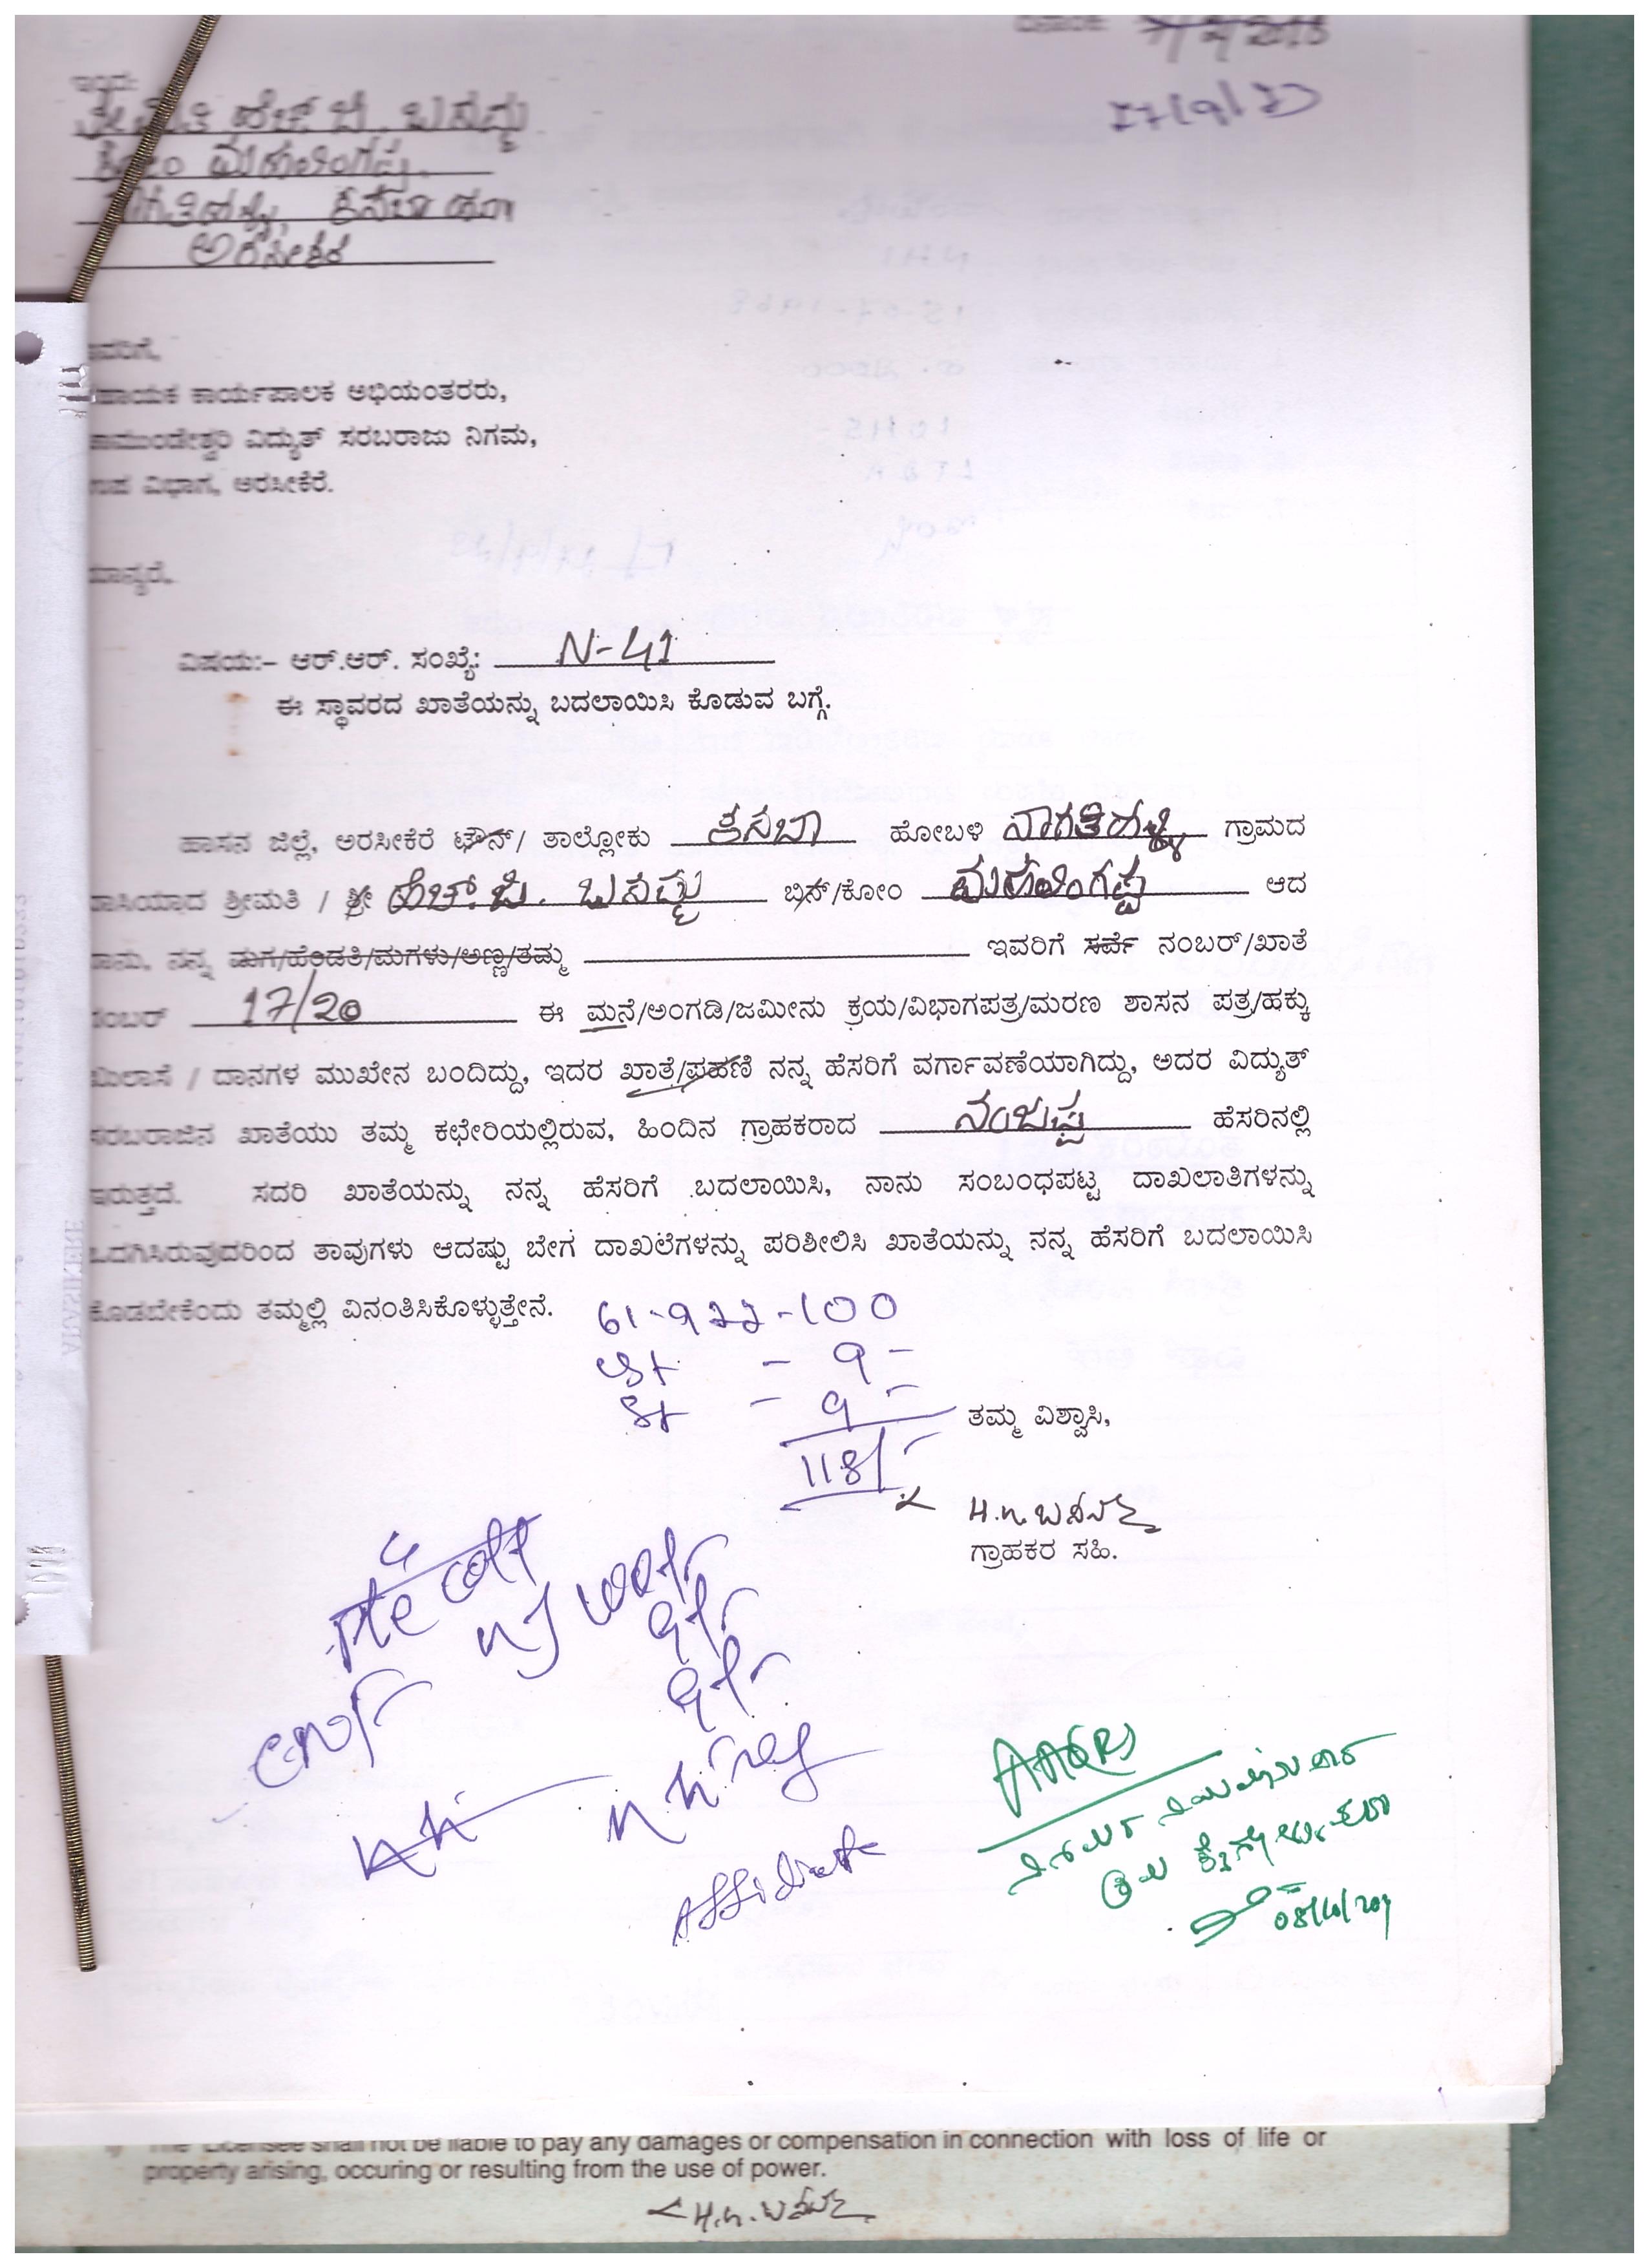 27/9/23
ಶ್ರೀಮತಿ ಹೆಚ್.ಬಿ. ಬಸಮ್ಮ
ಕೋಂ ಮಹಾಲಿಂಗಪ್ಪ
ನಾಗತಿಹಳ್ಳಿ, ಕಸಬಾ ಹೋ||
ಅರಸೀಕೆರೆ
ಇವರಿಗೆ,
ಸಹಾಯಕ ಕಾರ್ಯಪಾಲಕ ಅಭಿಯಂತರರು,
ಚಾಮುಂಡೇಶ್ವರಿ ವಿದ್ಯುತ್ ಸರಬರಾಜು ನಿಗಮ,
ಉಪ ವಿಭಾಗ, ಅರಸೀಕೆರೆ.
ಮಾನ್ಯರೆ,
ವಿಷಯ:– ಆರ್.ಆರ್. ಸಂಖ್ಯೆ: N-41
ಈ ಸ್ಥಾವರದ ಖಾತೆಯನ್ನು ಬದಲಾಯಿಸಿ ಕೊಡುವ ಬಗ್ಗೆ.
ಹಾಸನ ಜಿಲ್ಲೆ, ಅರಸೀಕೆರೆ ಟೌನ್/ ತಾಲ್ಲೋಕು ಕಸಬಾ ಹೋಬಳಿ ನಾಗತಿಹಳ್ಳಿ ಗ್ರಾಮದ
ವಾಸಿಯಾದ ಶ್ರೀಮತಿ / ಶ್ರೀ ಹೆಚ್.ಬಿ. ಬಸಮ್ಮ ಬಿನ್/ಕೋಂ ಮಹಾಲಿಂಗಪ್ಪ ಆದ
ನಾನು, ನನ್ನ ಮಗ/ಹೆಂಡತಿ/ಮಗಳು/ಅಣ್ಣ/ತಮ್ಮ ಇವರಿಗೆ ಸರ್ವೆ ನಂಬರ್/ಖಾತೆ
ನಂಬರ್ 17/20 ಈ ಮನೆ/ಅಂಗಡಿ/ಜಮೀನು ಕ್ರಯ/ವಿಭಾಗಪತ್ರ/ಮರಣ ಶಾಸನ ಪತ್ರ/ಹಕ್ಕು
ಖುಲಾಸೆ / ದಾನಗಳ ಮುಖೇನ ಬಂದಿದ್ದು, ಇದರ ಖಾತೆ/ಪಹಣಿ ನನ್ನ ಹೆಸರಿಗೆ ವರ್ಗಾವಣೆಯಾಗಿದ್ದು, ಅದರ ವಿದ್ಯುತ್
ಸರಬರಾಜಿನ ಖಾತೆಯು ತಮ್ಮ ಕಛೇರಿಯಲ್ಲಿರುವ, ಹಿಂದಿನ ಗ್ರಾಹಕರಾದ ನಂಜಪ್ಪ ಹೆಸರಿನಲ್ಲಿ
ಇರುತ್ತದೆ. ಸದರಿ ಖಾತೆಯನ್ನು ನನ್ನ ಹೆಸರಿಗೆ ಬದಲಾಯಿಸಿ, ನಾನು ಸಂಬಂಧಪಟ್ಟ ದಾಖಲಾತಿಗಳನ್ನು
ಒದಗಿಸಿರುವುದರಿಂದ ತಾವುಗಳು ಆದಷ್ಟು ಬೇಗ ದಾಖಲೆಗಳನ್ನು ಪರಿಶೀಲಿಸಿ ಖಾತೆಯನ್ನು ನನ್ನ ಹೆಸರಿಗೆ ಬದಲಾಯಿಸಿ
ಕೊಡಬೇಕೆಂದು ತಮ್ಮಲ್ಲಿ ವಿನಂತಿಸಿಕೊಳ್ಳುತ್ತೇನೆ.
61-922-100
- 9 -
- 9 -
118/-
ತಮ್ಮ ವಿಶ್ವಾಸಿ,
ಗ್ರಾಹಕರ ಸಹಿ.
The Licensee shall not be liable to pay any damages or compensation in connection with loss of life or
property arising, occuring or resulting from the use of power.